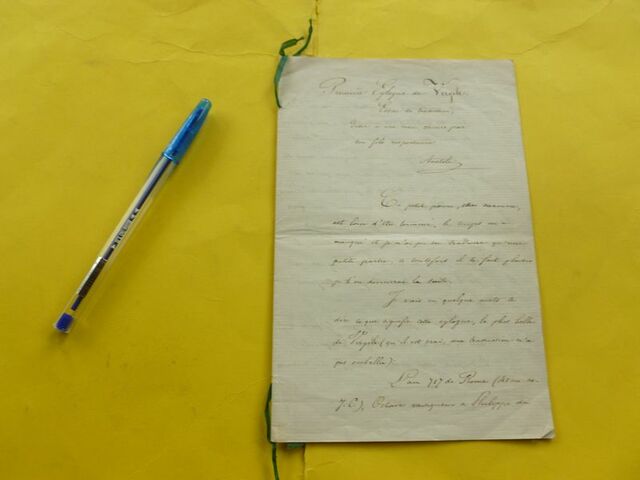 Première Eglogue de Virgile.
Essai de traduction,
Dédié à ma mère chérie par
son fils respectueux
Anatole
Ce petit poëme, chère maman,
est loin d'être terminé, le temps m'a
manqué et je n'ai pu en traduire qu'une
petite partie, si toutefois il te fait plaisir
je t'en donnerai la suite.
Je vais en quelques mots te
dire ce que signifie cette eglogue, la plus belle
de Virgile (qu'il est vrai, ma traduction n'a
pas embellie).
L'an 717 de Rome
J.C), Octave vainqueur à Philippe de